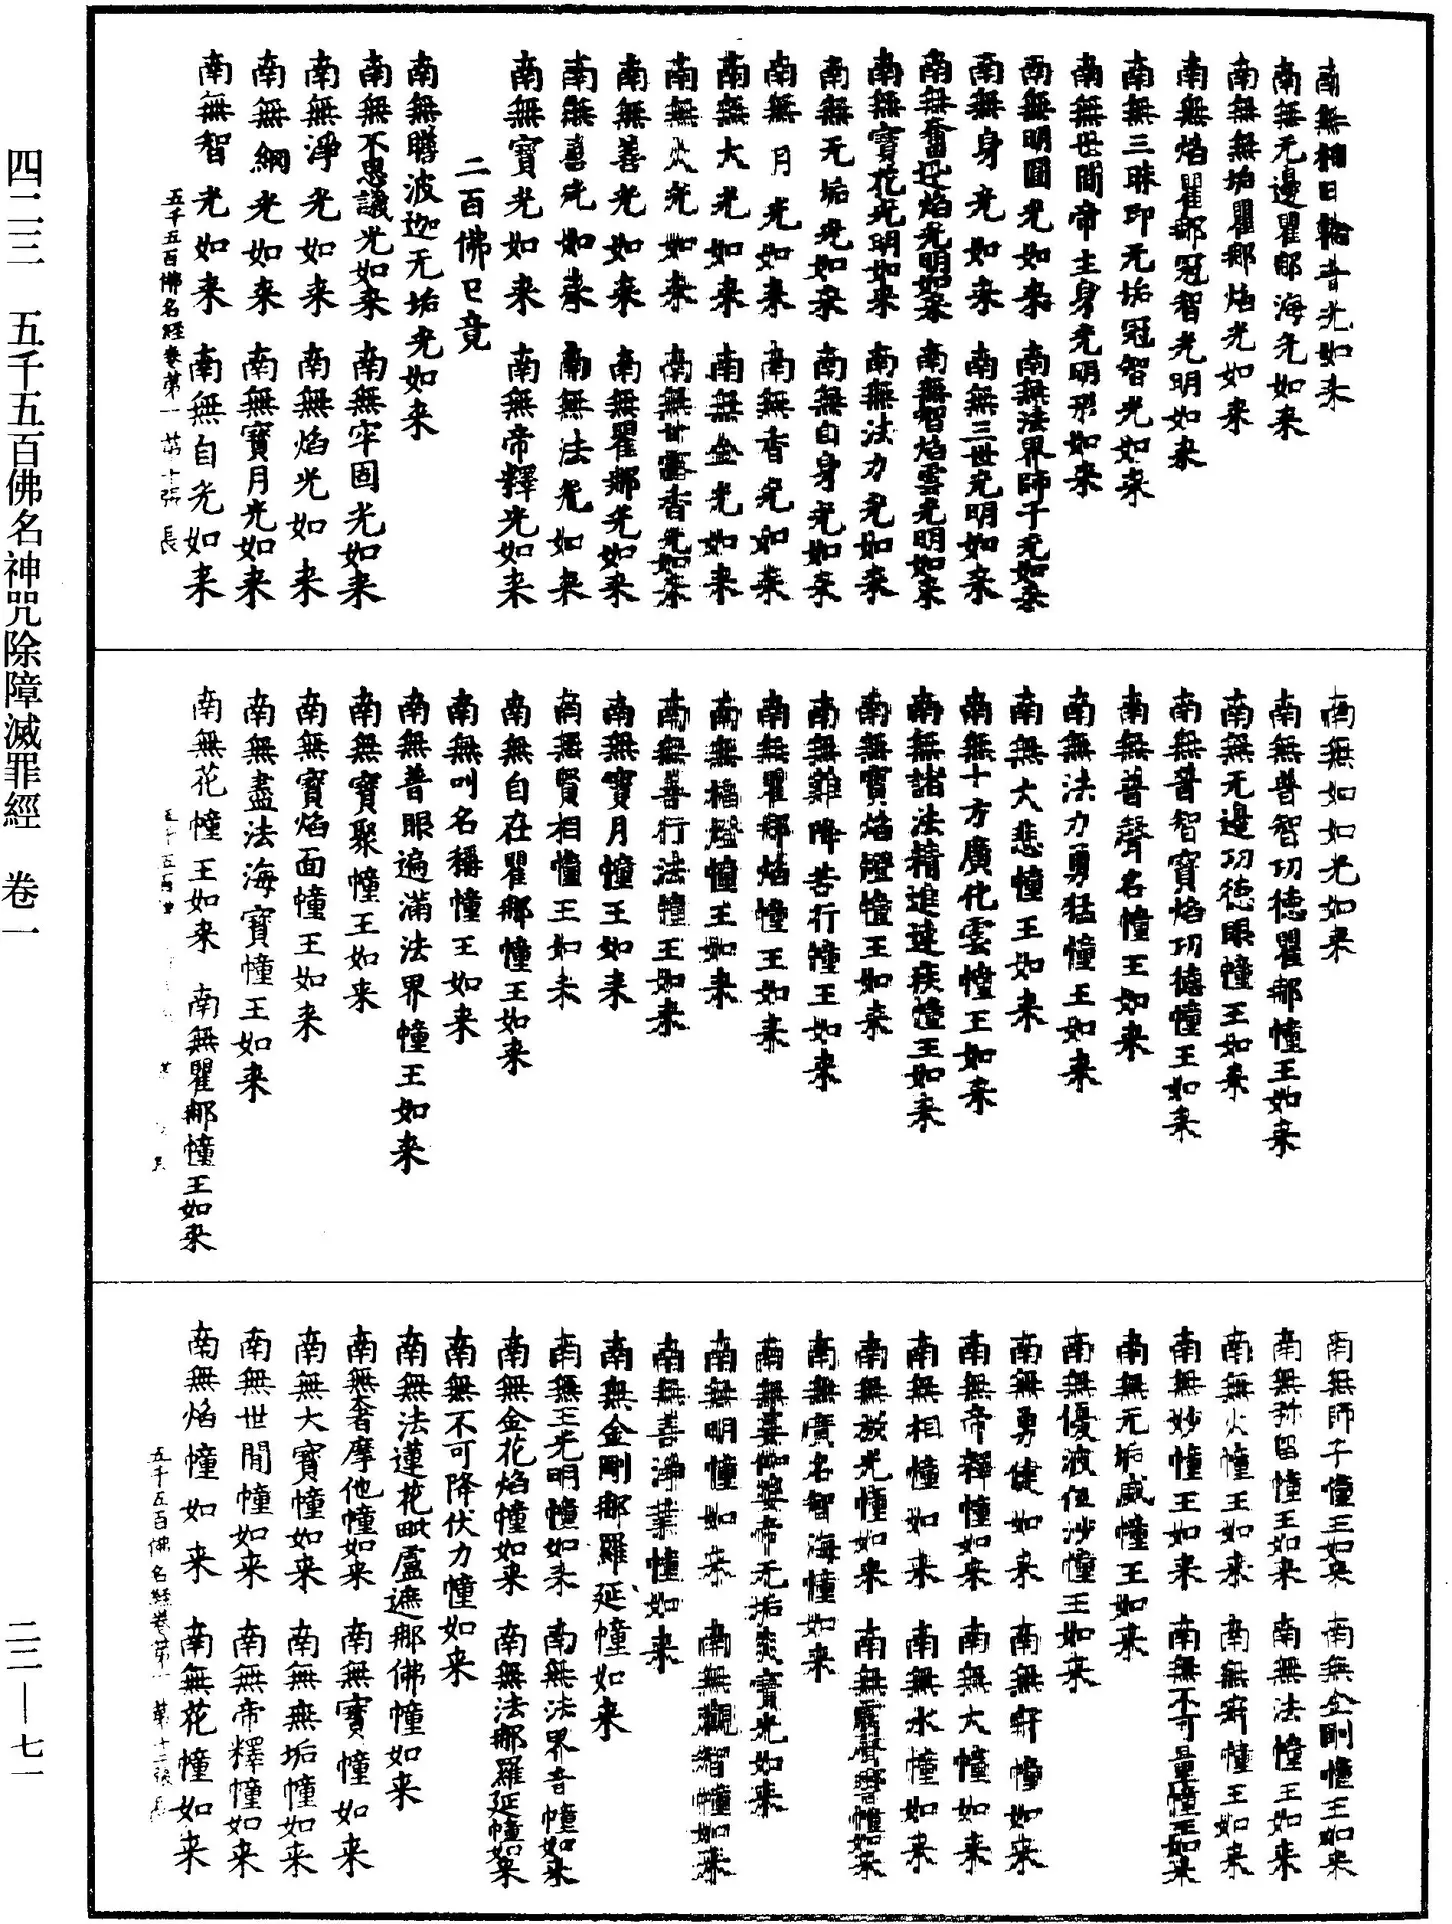 四二三　五千五百佛名神咒除障滅罪經　卷一
二二—七一
南無相日輪普光如来
南無无邊瞿那海光如来
南無無垢瞿那焰光如来
南無焰瞿那冠智光明如来
南無三昧印无垢冠智光如来
南無世間帝主身光明形如来
南無明圓光如来　南無法界師子光如来
南無身光如来　南無三世光明如来
南無奮迅焰光明如来　南無智焰雲光明如来
南無寶花光明如来　南無法力光如来
南無无垢光如来　南無自身光如来
南無月光如来　南無香光如来
南無大光如来　南無金光如来
南無火光如来　南無甘露香光如来
南無善光如来　南無瞿那光如来
南無喜光如来　南無法光如来
南無寶光如来　南無帝釋光如来
二百佛已竟
南無瞻波迦无垢光如来
南無不思議光如来　南無牢固光如来
南無淨光如来　南無焰光如来
南無網光如来　南無寶月光如来
南無智光如来　南無自光如来
五千五百佛名經卷第一　第十張　長
南無如如光如来
南無普智功德瞿那幢王如来
南無无邊功德眼幢王如来
南無普智寶焰功德幢王如来
南無普聲名幢王如来
南無法力勇猛幢王如来
南無大悲幢王如来
南無十方廣化雲幢王如来
南無諸法精進速疾幢王如来
南無寶焰燈幢王如来
南無難降苦行幢王如来
南無瞿那焰幢王如来
南無福燈幢王如来
南無善行法幢王如来
南無寶月幢王如来
南無賢相幢王如来
南無自在瞿那幢王如来
南無叫名稱幢王如来
南無普眼遍滿法界幢王如来
南無寶聚幢王如来
南無寶焰面幢王如来
南無盡法海寶幢王如来
南無花幢王如来　南無瞿那幢王如来
南無師子幢王如来　南無金剛幢王如来
南無弥留幢王如来　南無法幢王如来
南無火幢王如来　南無　幢王如来
南無妙幢王如来　南無不可量幢王如来
南無无垢威幢王如来
南無優波　沙幢王如来
南無勇健如来　南無　幢如来
南無帝釋幢如来　南無大幢如来
南無相幢如来　南無水幢如来
南無放光幢如来　南無　聲　幢如来
南無廣名智海幢如来
南無　帝无垢　寶光如来
南無明幢如来　南無觀智幢如来
南無善淨業幢如来
南無金剛那羅延幢如来
南無王光明幢如来　南無法界音幢如来
南無金花焰幢如来　南無法那羅延幢如来
南無不可降伏力幢如来
南無法蓮花毗盧遮那佛幢如来
南無奢摩他幢如来　南無寶幢如来
南無大寶幢如来　南無無垢幢如来
南無世間幢如来　南無帝釋幢如来
南無焰幢如来　南無花幢如来
五千五百佛名經卷第一　第十二張